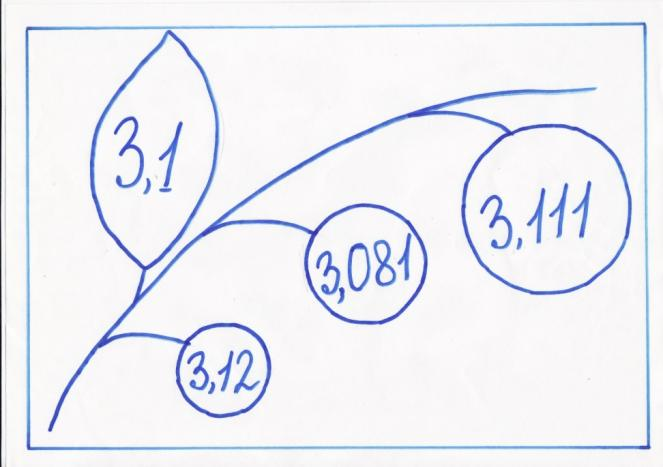 3,1
3,111
3,081
3,12